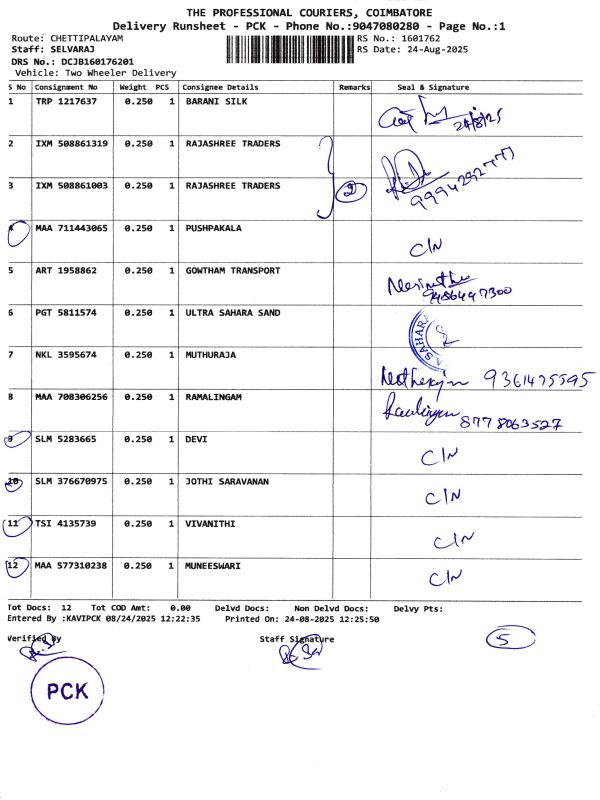 THE PROFESSIONAL COURIERS, COIMBATORE
Delivery Runsheet - PCK - Phone No.:9047080280 - Page No.:1
Route: CHETTIPALAYAM RS No.: 1601762
Staff: SELVARAJ RS Date: 24-Aug-2025
DRS No.: DCJB160176201
Vehicle: Two Wheeler Delivery
S No Consignment No Weight PCS Consignee Details Remarks Seal & Signature
1 TRP 1217637 0.250 1 BARANI SILK
24/8/25
2 IXM 508861319 0.250 1 RAJASHREE TRADERS
3 IXM 508861003 0.250 1 RAJASHREE TRADERS 2 9994292777
4 MAA 711443065 0.250 1 PUSHPAKALA
C/N
5 ART 1958862 0.250 1 GOWTHAM TRANSPORT
9486497300
6 PGT 5811574 0.250 1 ULTRA SAHARA SAND SAHARA
7 NKL 3595674 0.250 1 MUTHURAJA
9361475595
8 MAA 708306256 0.250 1 RAMALINGAM
8778063527
9 SLM 5283665 0.250 1 DEVI
C/N
10 SLM 376670975 0.250 1 JOTHI SARAVANAN
C/N
11 TSI 4135739 0.250 1 VIVANITHI
C/N
12 MAA 577310238 0.250 1 MUNEESWARI
C/N
Tot Docs: 12 Tot COD Amt: 0.00 Delvd Docs: Non Delvd Docs: Delvy Pts:
Entered By :KAVIPCK 08/24/2025 12:22:35 Printed On: 24-08-2025 12:25:50
Verified By Staff Signature 5
PCK